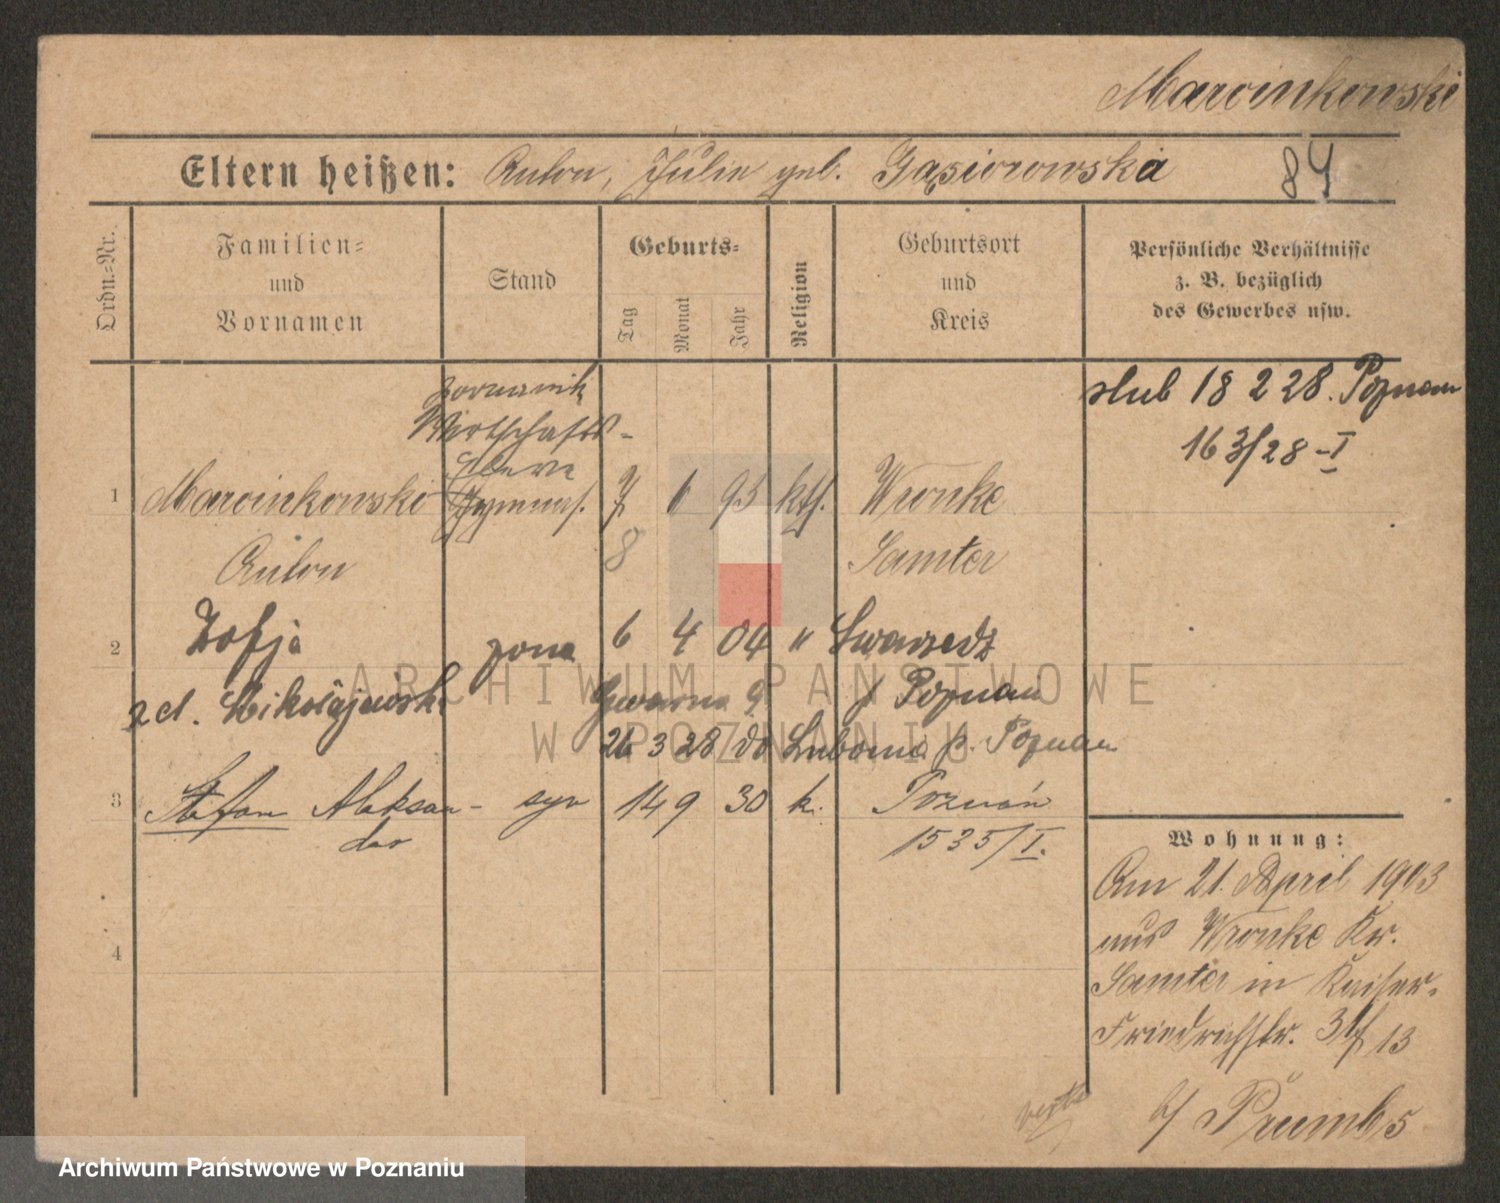 Marcinkowski
Eltern heißen: Anton, Julie geb. Gąsiorowska
84
Ordn.-Nr.
Familien- und Vornamen
Stand
Geburts-
Tag
Monat
Jahr
Religion
Geburtsort und Kreis
Persönliche Verhältnisse z. B. bezüglich des Gewerbes usw.
slub 18 2 28. Poznan
16 3/28 - I
Wirtschafts-
Eleve
1 Marcinkowski Gymnas. 7 6 93 kth. Wronke
Anton 8 Samter
2 Zofja zona 6 4 04 " Swarzedz
z d. Mikołajewska Gwarna 9 / Poznan
26 3 28 do Lubonia p. Poznan
3 Stefan Aleksan- syn 14 9 30 k. Poznań
der 1535/I.
4
Wohnung:
Am 21. April 1913
aus Wronke Kr.
Samter in Kaiser-
Friedrichstr. 31 13
b/ Prümbs
verte
ARCHIWUM PAŃSTWOWE
W POZNANIU
Archiwum Państwowe w Poznaniu